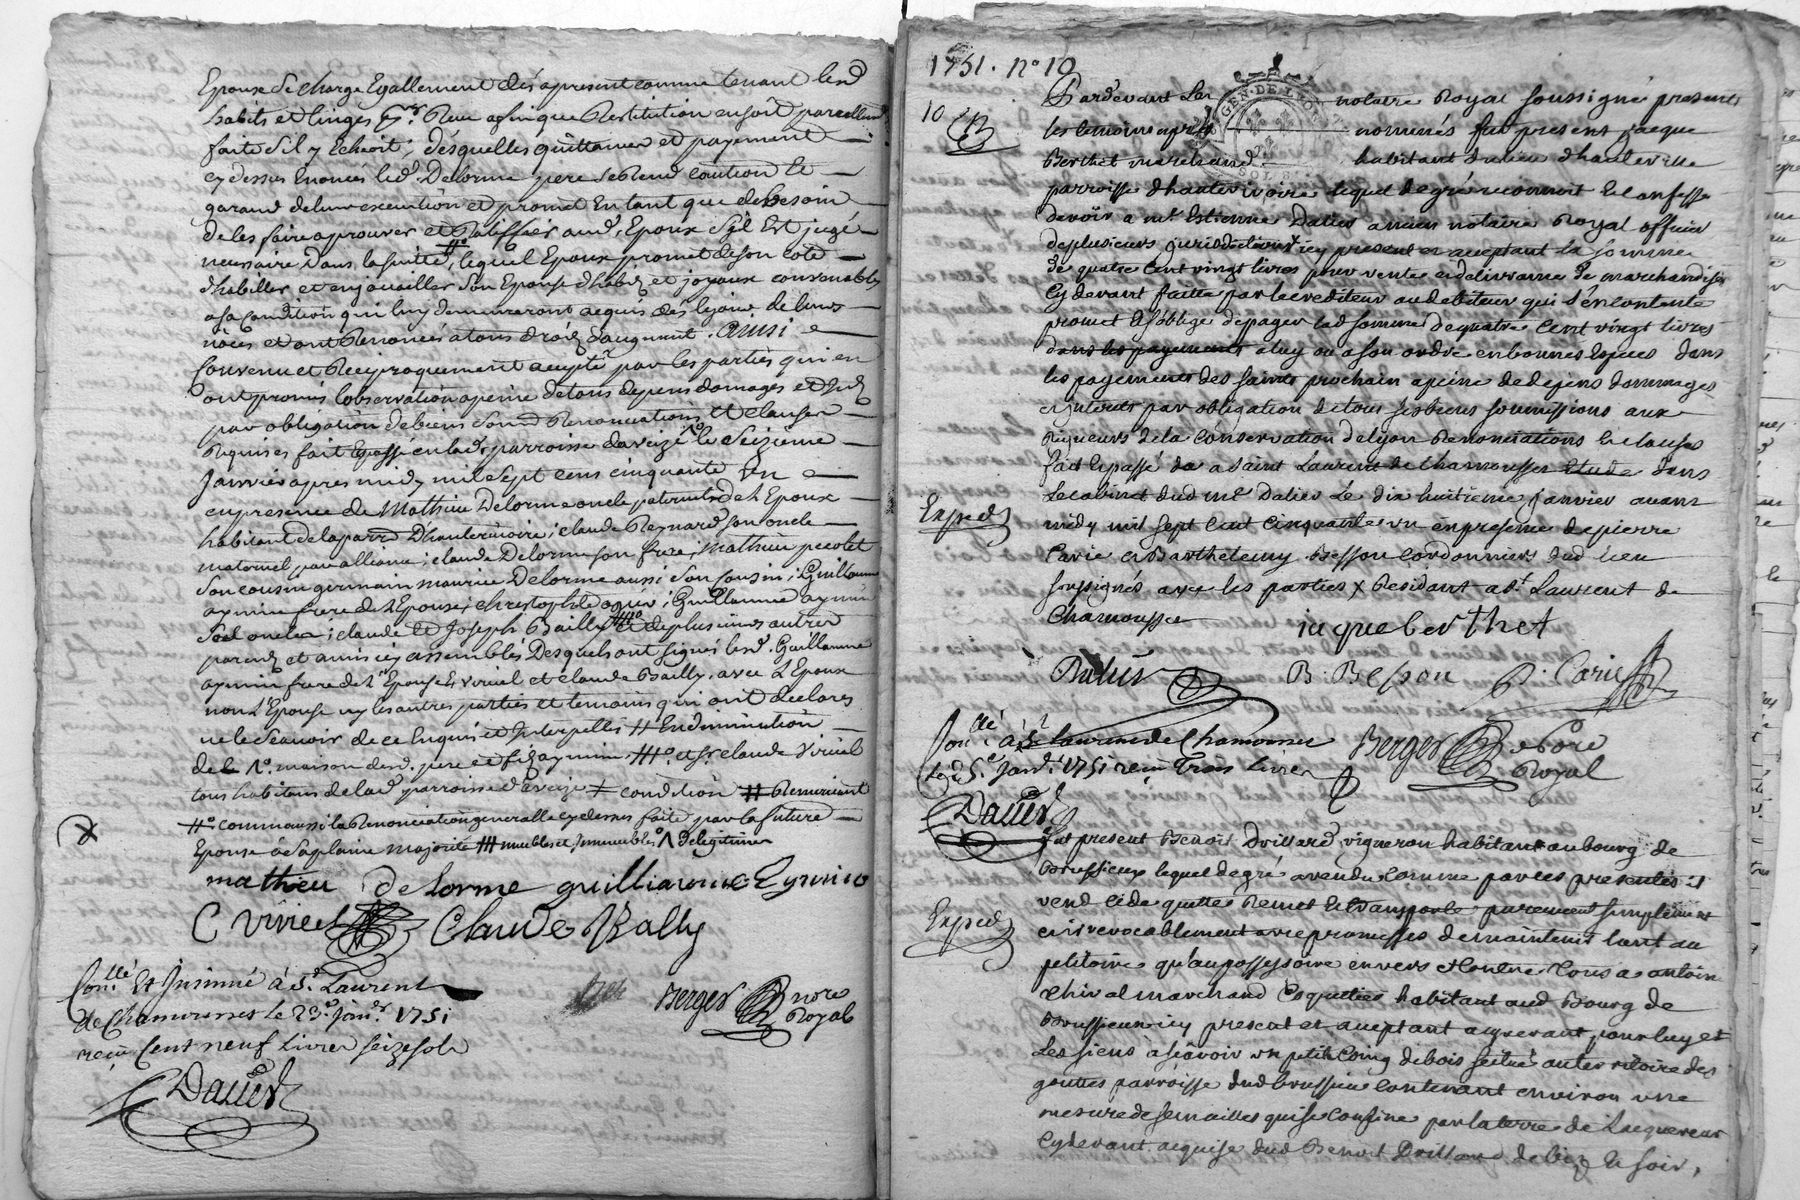 Epouse se charge Egallement dés apresent comme tenant lesd
habits et linges Reçu afin que Restitution en soit pareillemt
faite s'il y Echeoit, désquelles quittance et payement
cy dessus Enoncés led. Delorme pere se Rend caution Et
garand de leur execution et promet En tant que de Besoin
de les faire aprouver et Ratiffier aud. Epoux s'il Est jugé
necessaire Dans la suitte, lequel Epoux promet de son coté
d'habiller et enjouailler son Epouse d'habits et joyaux convenables
a sa condition qui luy demeureront acquis dés le jour de leurs
nôces et ont Renoncés a tous droits d'augment. Ainsi
Convenu et Reciproquement accepté par les parties qui en
ont promis l'observation a peine de tous depens domages et
par obligation de biens Renonciations Et clauses
Requises fait Et passé en lad. parroisse daveizé le Seizieme
Janvier apres midy mil sept cens cinquante Un
en presence de Mathieu Delorme oncle paternel de l'Epoux
habitant de la parr. D'hauterivoire, claude Reynard son oncle
maternel par alliance; claude Delorme son frere; Mathieu pecolet
son cousin germain maurice Delorme aussi son cousin; Guillaume
aymin frere de l'Epouse; christophle ogier; Guillaume aymin
son oncle; claude Et Joseph Bailly Et de plusieurs autres
parens et amis icy assemblés Desquels ont signés lesd. Guillaume
aymin frere de l'Epouse, viricel et claude Bailly, avec L'Epoux
non L'Epouse ny les autres parties et temoins qui ont declarés
ne le Scavoir de ce Enquis et Interpellés # En diminution
de l maison desd. pere et fils aymin ## et sr claude Viricel
tous habitans de lad. parroisse d'aveize condition # Renonciant
comm aussi la Renonciation generalle cy dessus faite par la future
Epouse a sa plaine majorité ### meubles et Immeubles de legitime
mathieu de lorme guilliaume Eymin
C viricel Claude Bally
Con.llé Et Insinué à St. Laurent
de Chamousset le 23e. janer. 1751
reçu Cent neuf livres seize sols
Berger nore
Royal
Dalier
1751. No 10
10
Pardevant Le notaire Royal soussigné presents
les temoins apres nommés fut present jacque
Berthet marchand habitant du lieu d'hauteville
parroisse d'hauterivoire lequel de gré reconnoit Et confesse
devoir a me. Estienne Dalier ancien notaire Royal officier
de plusieurs jurisdictions icy present et acceptant la somme
de quatre Cent vingt livres pour vente et delivrance de marchandises
Cy devant faitte par le crediteur au debiteur qui s'en contente
promet Et s'oblige de payer lad somme de quatre Cent vingt livres
dans les payements a luy ou a son ordre en bonnes Especes dans
les payements des saints prochain a peine de depens dommages
et interets par obligation de tous ses biens soumissions aux
Rigueurs de la Conservation de lyon Renonciations Et clauses
fait Et passé a Saint Laurent de Chamousset Etude dans
le cabinet dud me. Dalier Le dix huitieme janvier avant
midy mil sept Cent Cinquante un en presence de pierre
Carie et Barthelemy Besson Cordonniers dud lieu
soussignés avec les parties x Residant a St. Laurent de
Chamousset
Exped
iaque berthet
Dalier B. Besson P. Carie
Con.llé à St laurent de Chamousset
le 25e. Janer. 1751 reçu Trois livres
Dalier
Berger nore
Royal
Fut present Benoit Drillard vigneron habitant au bourg de
Brussieux lequel de gré a vendu comme par ces presentes il
vend Cede quitte Remet Et transporte purement simplement
et irrevocablement avec promesses de maintenir tant au
petitoire qu'au possessoire envers et Contre tous a antoine
Chival marchand Coquetier habitant aud Bourg de
Brussieux icy present et acceptant acquerant pour luy et
Les siens a sçavoir un petit Coing de bois scitué au territoire des
gouttes parroisse dud brussieu contenant environ une
mesure de semailles qui se Confine par la terre de L'acquereur
Cy devant acquise dud Benoit Drillard de bize Et soir,
Exped